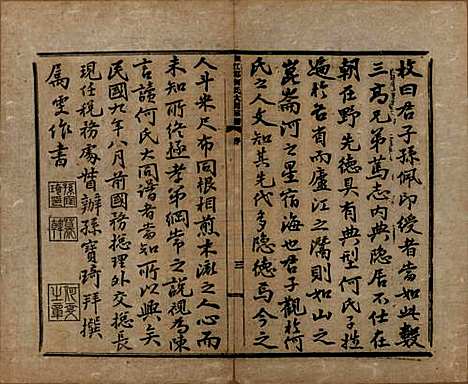 枚曰君子孫佩印綬者當如此數
三高兄弟篤志內典隱居不仕在
朝在野先德具有典型何氏子姓
遍於各省而廬江之濡則如山之
崑崙河之星宿海也世君子觀於何
氏之人文知其先代多隱德焉今之
序
三
人斗米尺布同根相煎木瀜之人心而
未知所終極孝弟綱常之說視為陳
言讀何氏大同譜者當知所以興矣
民國九年八月前國務總理外交總長
現任稅務處督辦孫寶琦拜撰
屬雯作書